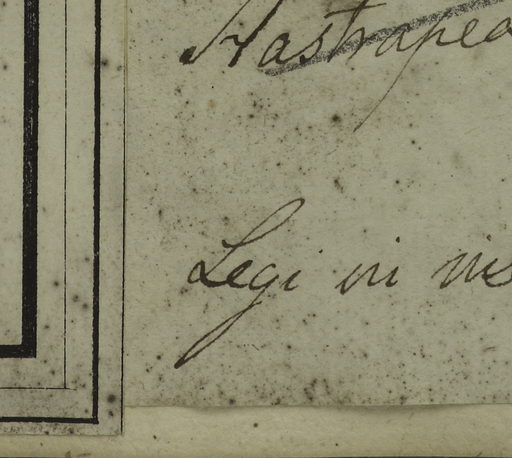 Hastrapea
Legi in ins